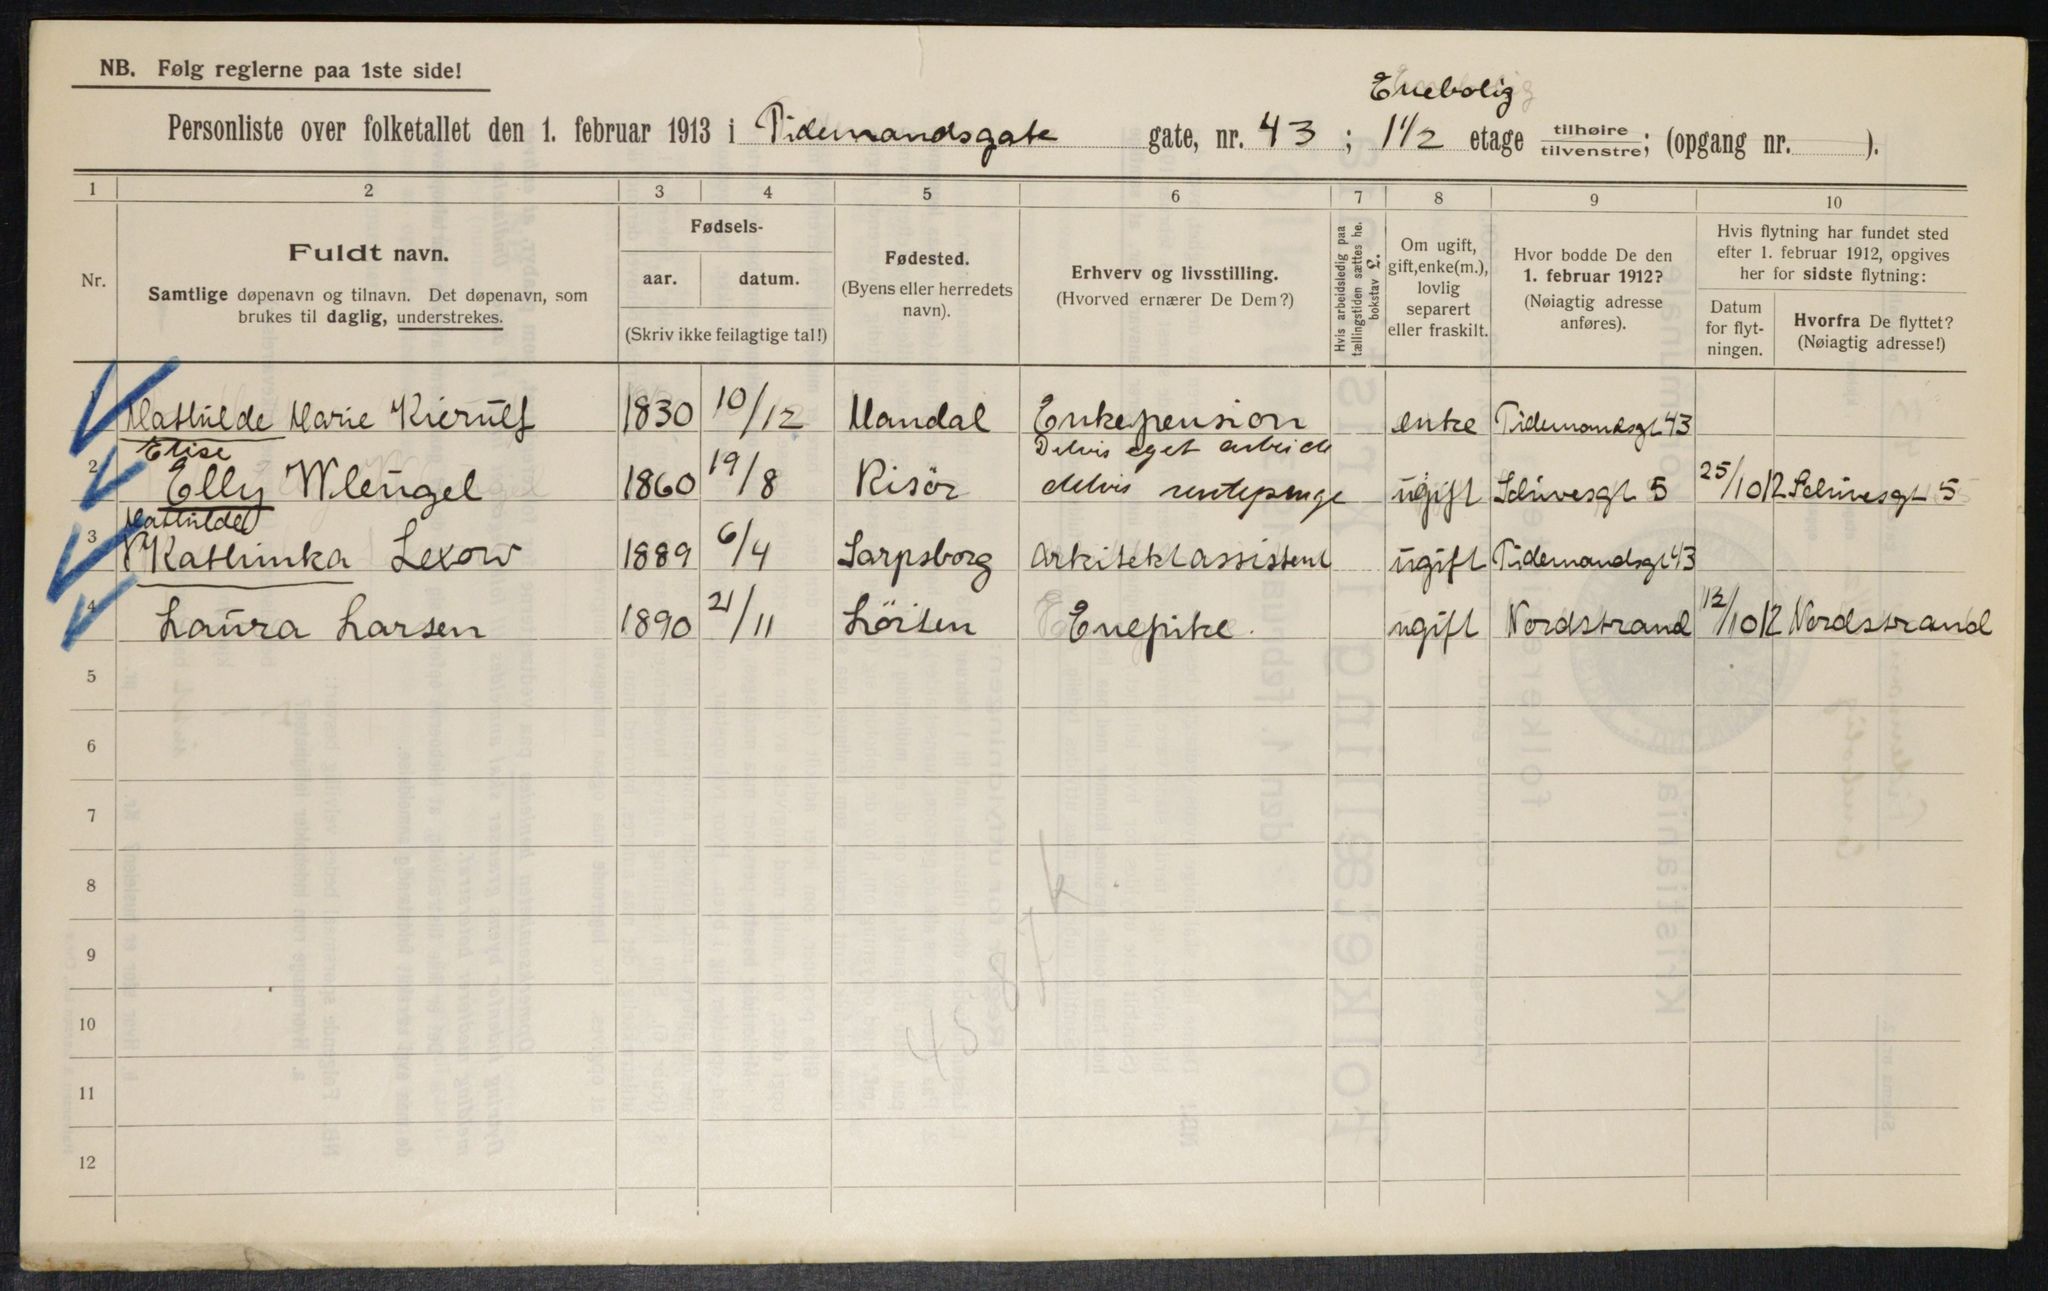 NB. Følg reglerne paa 1ste side!
Enebolig
Personliste over folketallet den 1. februar 1913 i Tidemandsgate gate, nr. 43 ; 1 1/2 etage tilhøire tilvenstre; (opgang nr. ).
1 2 3 4 5 6 7 8 9 10
Nr.
Fuldt navn.
Samtlige døpenavn og tilnavn. Det døpenavn, som
brukes til daglig, understrekes.
Fødsels-
aar. datum.
(Skriv ikke feilagtige tal!)
Fødested.
(Byens eller herredets
navn).
Erhverv og livsstilling.
(Hvorved ernærer De Dem?)
Hvis arbeidsledig paa
tællingstiden sættes he.
bokstav L.
Om ugift,
gift, enke(m.),
lovlig
separert
eller fraskilt.
Hvor bodde De den
1. februar 1912?
(Nøiagtig adresse
anføres).
Hvis flytning har fundet sted
efter 1. februar 1912, opgives
her for sidste flytning:
Datum
for flyt-
ningen.
Hvorfra De flyttet?
(Nøiagtig adresse!)
1 Mathilde Marie Kierulf 1830 10/12 Mandal Enkepension enke Tidemandsgt 43
Elise Delvis eget arbeide
2 Elly Wlengel 1860 19/8 Risör delvis rentepenge ugift Schivesgt 5 25/10 12 Schivesgt 5
Mathilde
3 Kathinka Lexow 1889 6/4 Sarpsborg Arkitektassistent ugift Tidemandsgt 43
4 Laura Larsen 1890 21/11 Löiten Enepike. ugift Nordstrand 12/10 12 Nordstrand
5
6
7
8
9
10
11
12